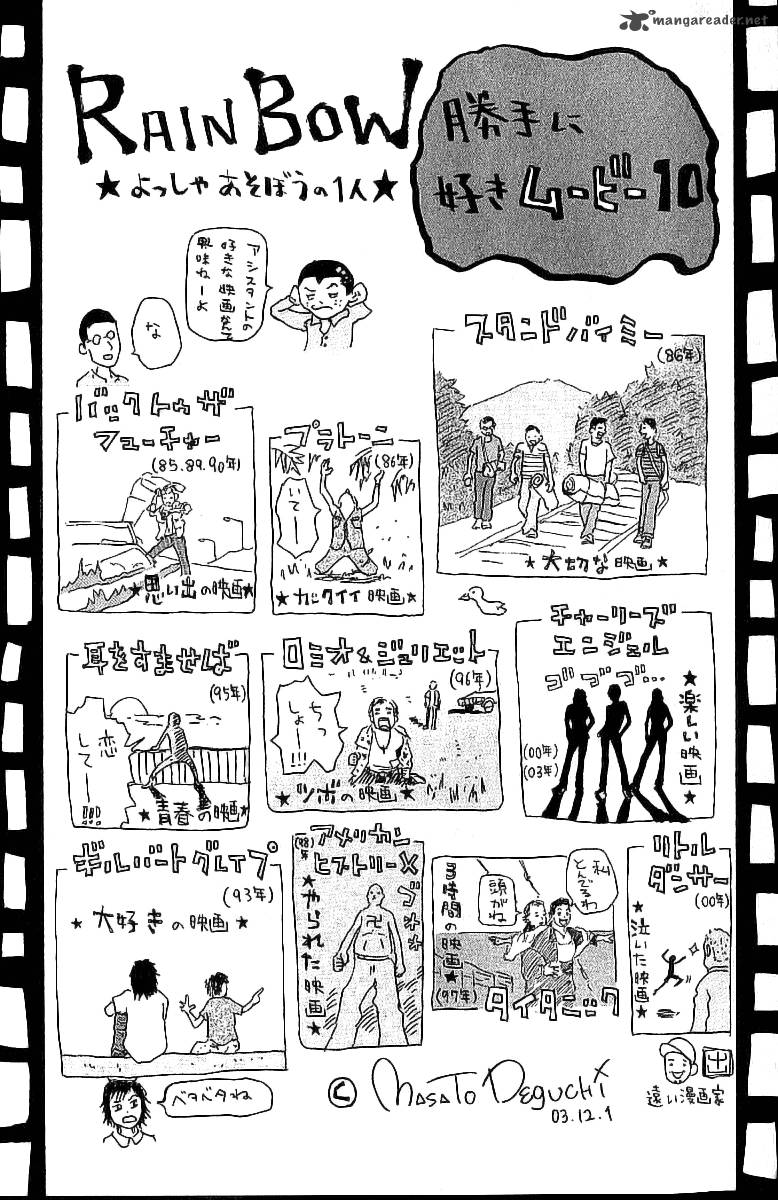 mangareader.net
RAINBOW
★よっしゃあそぼうの1人★
勝手に
好きムービー10
アシスタントの
好きな映画なんて
興味ねーよ
な
スタンドバイミー
(86年)
★大切な映画★
バックトゥザ
フューチャー
(85.89.90年)
★思い出の映画★
プラトーン
(86年)
いてーー
★カックイイ映画★
耳をすませば
(95年)
恋
してー!!!
★青春の映画★
ロミオ&ジュリエット
(96年)
ちっ
しょー!!!
★ツボの映画★
チャーリーズ
エンジェル
ゴゴゴ…
(00年)
(03年)
★楽しい映画★
ギルバートグレイプ
(93年)
★大好きの映画★
アメリカン
ヒストリーX
(98年)
★やられた映画★
3時間の映画★
(97年)
頭がね
私
とんでるわ
タイタニック
リトル
ダンサー
(00年)
★泣いた映画★
ベタベタね
© MASATO DEGUCHI
03.12.1
遠い漫画家